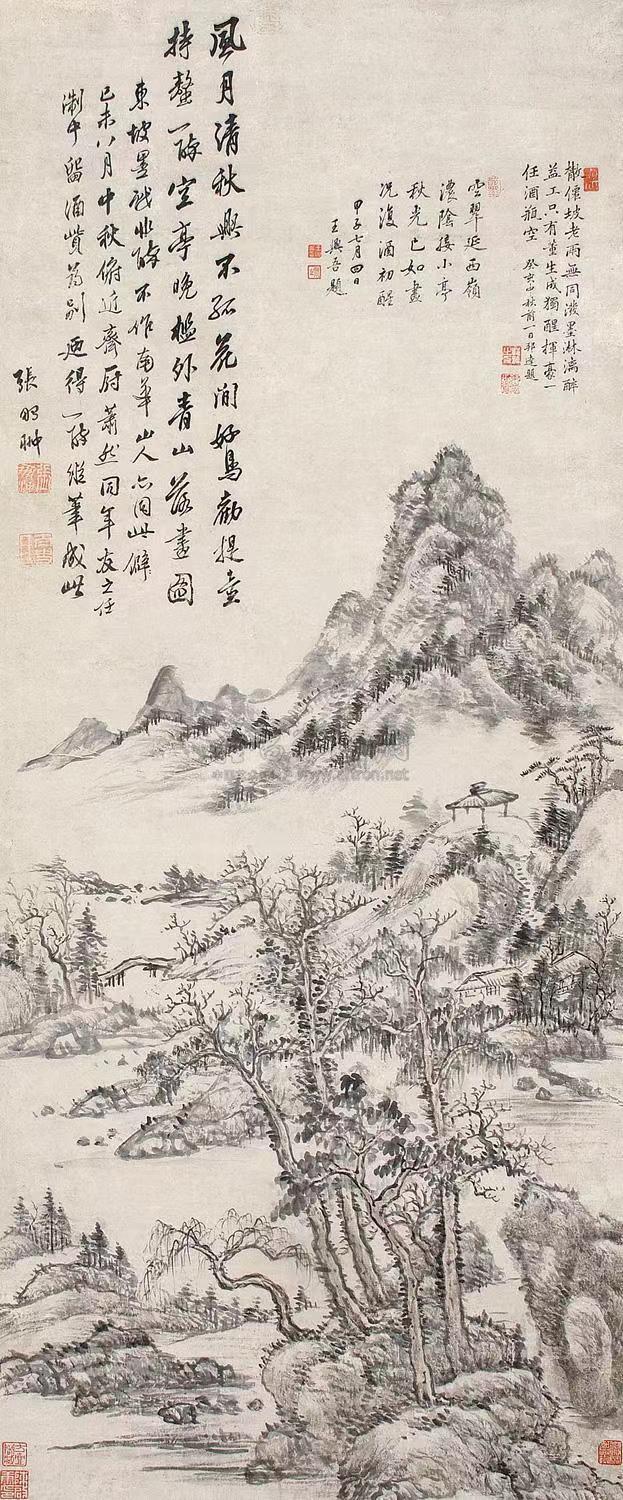 散僊坡老兩無同潑墨淋漓醉
益工只有董生成獨醒揮豪一
任酒瓶空 癸亥中秋前一日邦達題
雲翠延西嶺
濃陰接小亭
秋光已如畫
況復酒初醒
甲子七月四日
王興吾題
風月清秋興不孤花間好鳥勸提壺
持螯一醉空亭晚檻外青山落畫圖
東坡墨戲非醉不作南華山人亦同此癖
己未八月中秋節近齋廚蕭然同年友之任
淛中留酒貲為別廼得一醉縱筆成此
張鵬翀
www.artron.net